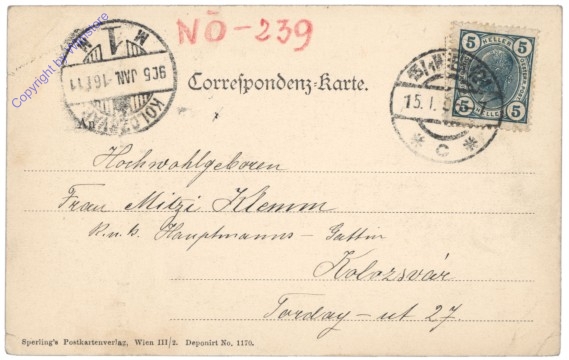 NÖ-239
M 1 M
905 JAN. 16
KOLOZSVÁR
Copyright by
5 HELLER 5
5 HELLER 5
15. I.
* C *
Correspondenz-Karte.
An
Hochwohlgeboren
Frau Mitzi Klemm
K. u. k. Hauptmanns-Gattin
Kolozsvár
Torday-ut 27
Sperling's Postkartenverlag, Wien III/2. Deponirt No, 1170.